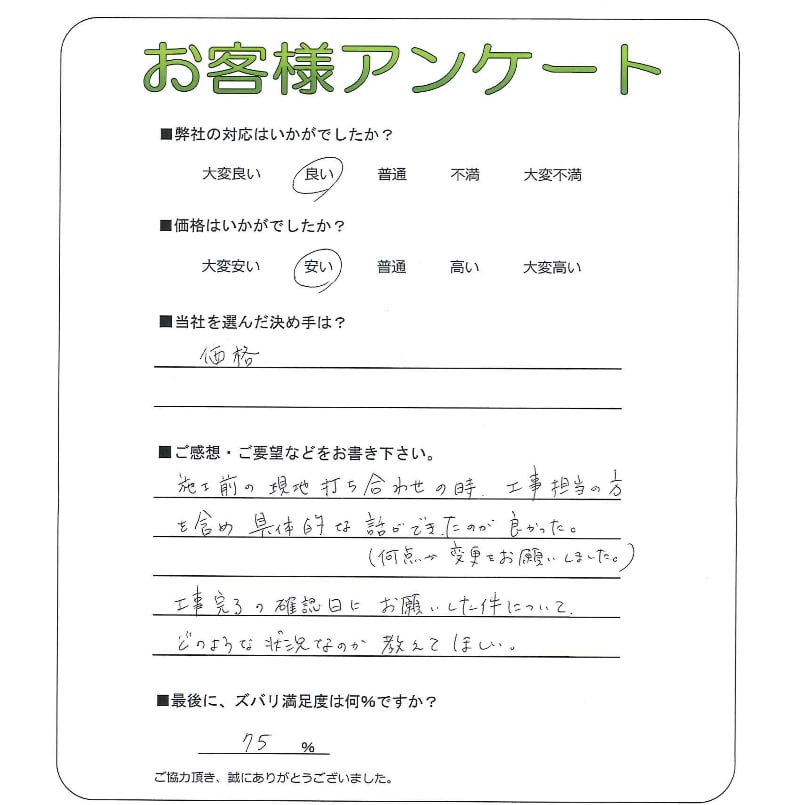 お客様アンケート
■弊社の対応はいかがでしたか？
大変良い 良い 普通 不満 大変不満
■価格はいかがでしたか？
大変安い 安い 普通 高い 大変高い
■当社を選んだ決め手は？
価格
■ご感想・ご要望などをお書き下さい。
施工前の現地打ち合わせの時、工事担当の方
を含め具体的な話ができたのが良かった。
(何点か変更をお願いしました。)
工事完了の確認日にお願いした件について、
どのような状況なのか教えてほしい。
■最後に、ズバリ満足度は何％ですか？
75 ％
ご協力頂き、誠にありがとうございました。